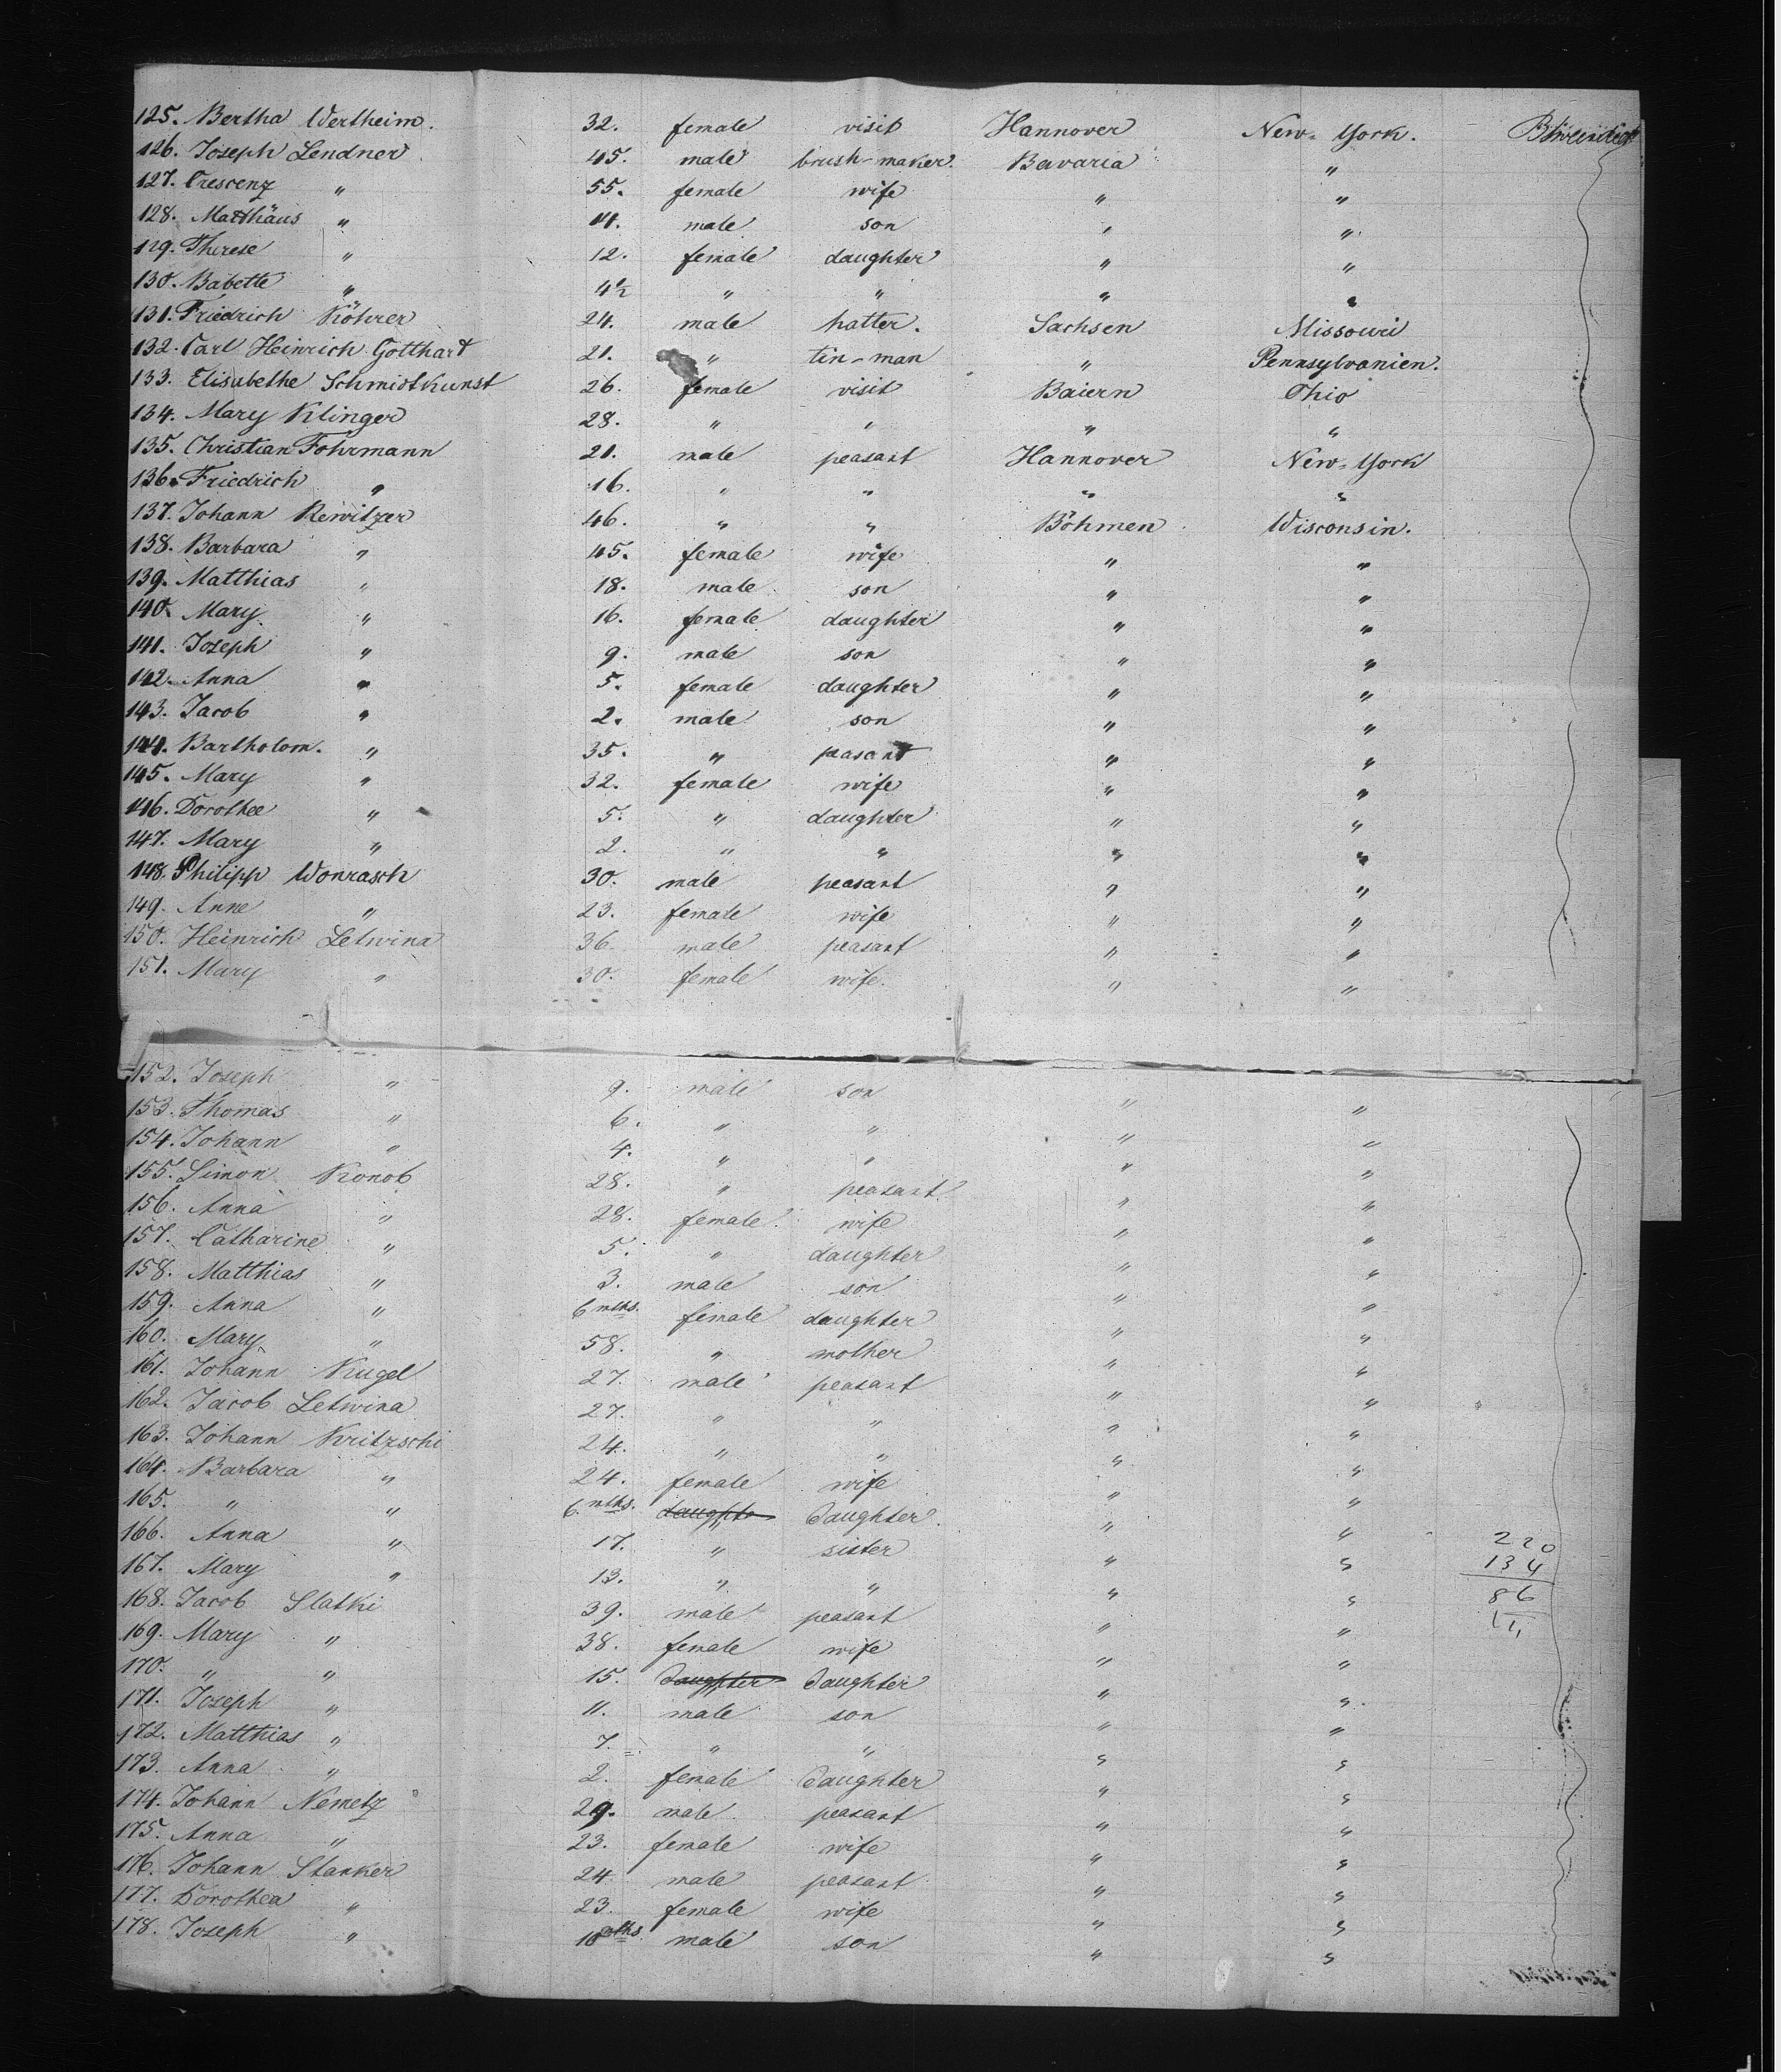 125. Bertha Wertheim. 32. female visit Hannover New-York.
126. Joseph Lendner 45. male brush-maker. Bavaria "
127. Crescenz " 55. female wife " "
128. Matthäus " 11. male son " "
129. Therese " 12. female daughter " "
130. Babette " 4½ " " " "
131. Friedrich Köhrer 24. male hatter. Sachsen Missouri
132. Carl Heinrich Gotthart 21. " tin-man " Pennsylvanien.
133. Elisabethe Schmidtkunst 26. female visit Baiern Ohio
134. Mary Klinger 28. " " " "
135. Christian Fohrmann 21. male peasant Hannover New-York
136. Friedrich " 16. " " " "
137. Johann Rewitzer 46. " " Böhmen Wisconsin.
138. Barbara " 45. female wife " "
139. Matthias " 18. male son " "
140. Mary " 16. female daughter " "
141. Joseph " 9. male son " "
142. Anna " 5. female daughter " "
143. Jacob " 2. male son " "
144. Bartholom. " 35. " peasant " "
145. Mary " 32. female wife " "
146. Dorothee " 5. " daughter " "
147. Mary " 2. " " " "
148. Philipp Wonrasch 30. male peasant " "
149. Anne " 23. female wife " "
150. Heinrich Letwina 36. male peasant " "
151. Mary " 30. female wife. " "
152. Joseph " 9. male son " "
153. Thomas " 6. " " " "
154. Johann " 4. " " " "
155. Simon Konob 28. " peasant " "
156. Anna " 28. female wife " "
157. Catharine " 5. " daughter " "
158. Matthias " 3. male son " "
159. Anna " 6 mths. female daughter " "
160. Mary " 58. " mother " "
161. Johann Kugel 27. male peasant " "
162. Jacob Letwina 27. " " " "
163. Johann Kritzschi 24. " " " "
164. Barbara " 24. female wife " "
165. " " 6. mths. " daughter " "
166. Anna " 17. " sister " " 220
167. Mary " 13. " " " " 134
168. Jacob Slatki 39. male peasant " " 86
169. Mary " 38. female wife " "
170. " " 15. daughter daughter " "
171. Joseph " 11. male son " "
172. Matthias " 7. " " " "
173. Anna " 2. female daughter " "
174. Johann Nemetz 29. male peasant " "
175. Anna " 23. female wife " "
176. Johann Stanker 24 male peasant " "
177. Dorothea " 23. female wife " "
178. Joseph " 10 mths. male son " "